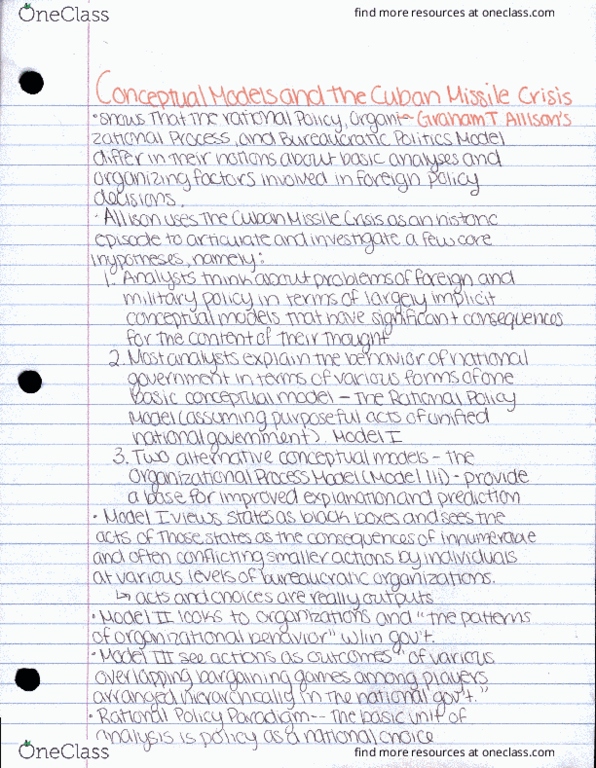 OneClass
find more resources at oneclass.com
Conceptual Models and the Cuban Missile Crisis
• Shows that the rational Policy, Organi- Graham T Allison's
zational Process, and Bureaucratic Politics Model
differ in their notions about basic analyses and
organizing factors involved in foreign policy
decisions.
• Allison uses the Cuban Missile Crisis as an historic
episode to articulate and investigate a few core
hypotheses, namely:
1. Analysts think about problems of foreign and
military policy in terms of largely implicit
conceptual models that have significant consequences
for the content of their thought
2. Most analysts explain the behavior of national
government in terms of various forms of one
basic conceptual model - the Rational Policy
Model (assuming purposeful acts of unified
national government). Model I
3. Two alternative conceptual models - the
Organizational Process Model (Model III) - provide
a base for improved explanation and prediction
• Model I views states as black boxes and sees the
acts of those states as the consequences of innumerable
and often conflicting smaller actions by individuals
at various levels of bureaucratic organizations.
↳ acts and choices are really outputs
• Model II looks to organizations and "the patterns
of organizational behavior" w/in gov't.
• Model III see actions as outcomes "of various
overlapping bargaining games among players
arranged hierarchically in the national gov't."
• Rational Policy Paradigm-- the basic unit of
analysis is policy as a national choice
OneClass
find more resources at oneclass.com